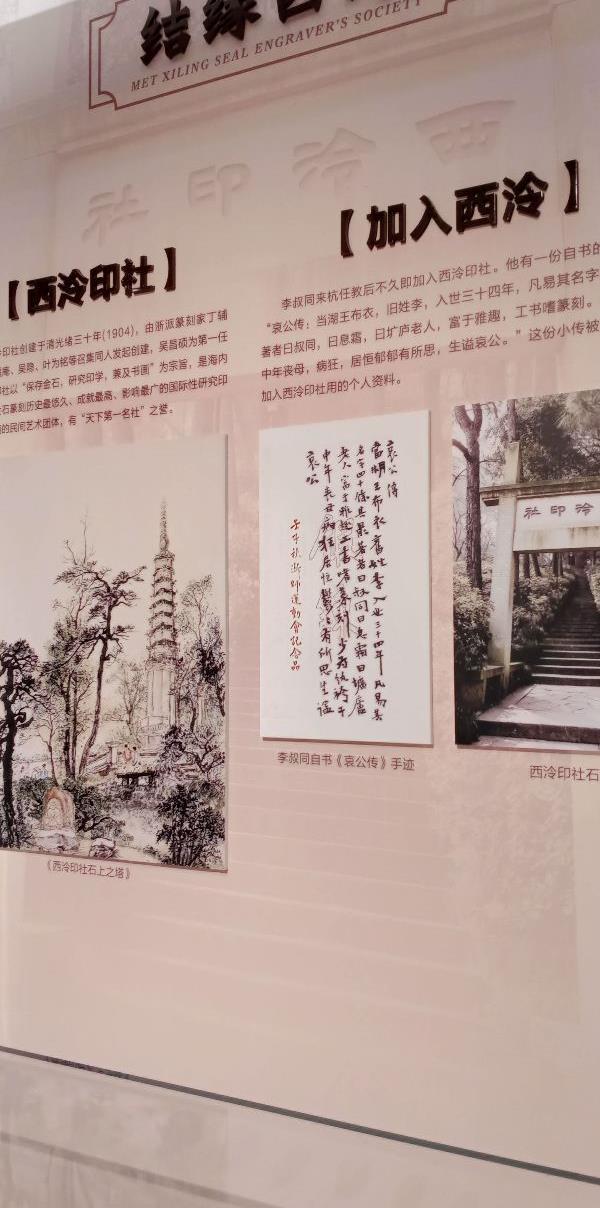 结缘西
MET XILING SEAL ENGRAVER'S SOCIETY
西泠印社
【西泠印社】
印社创建于清光绪三十年(1904)，由浙派篆刻家丁辅
庵、吴隐、叶为铭等召集同人发起创建，吴昌硕为第一任
社以“保存金石，研究印学，兼及书画”为宗旨，是海内
石篆刻历史最悠久、成就最高、影响最广的国际性研究印
的民间艺术团体，有“天下第一名社”之誉。
《西泠印社石上之塔》
【加入西泠】
李叔同来杭任教后不久即加入西泠印社。他有一份自书的
“哀公传：当湖王布衣，旧姓李，入世三十四年，凡易其名字
著者曰叔同，曰息霜，曰圹庐老人，富于雅趣，工书嗜篆刻。
中年丧母，病狂，居恒郁郁有所思，生谥哀公。”这份小传被
加入西泠印社用的个人资料。
哀公傳
當湖王布衣舊姓李入世三十四年凡易其
名字四十餘其最著者曰叔同曰息霜曰壙廬
老人富于雅趣工書嗜篆刻少為紈絝子
中年喪母病狂居恒鬱鬱有所思生謚
哀公
壬子秋浙師運動會記念品
李叔同自书《哀公传》手迹
西泠印社
西泠印社石